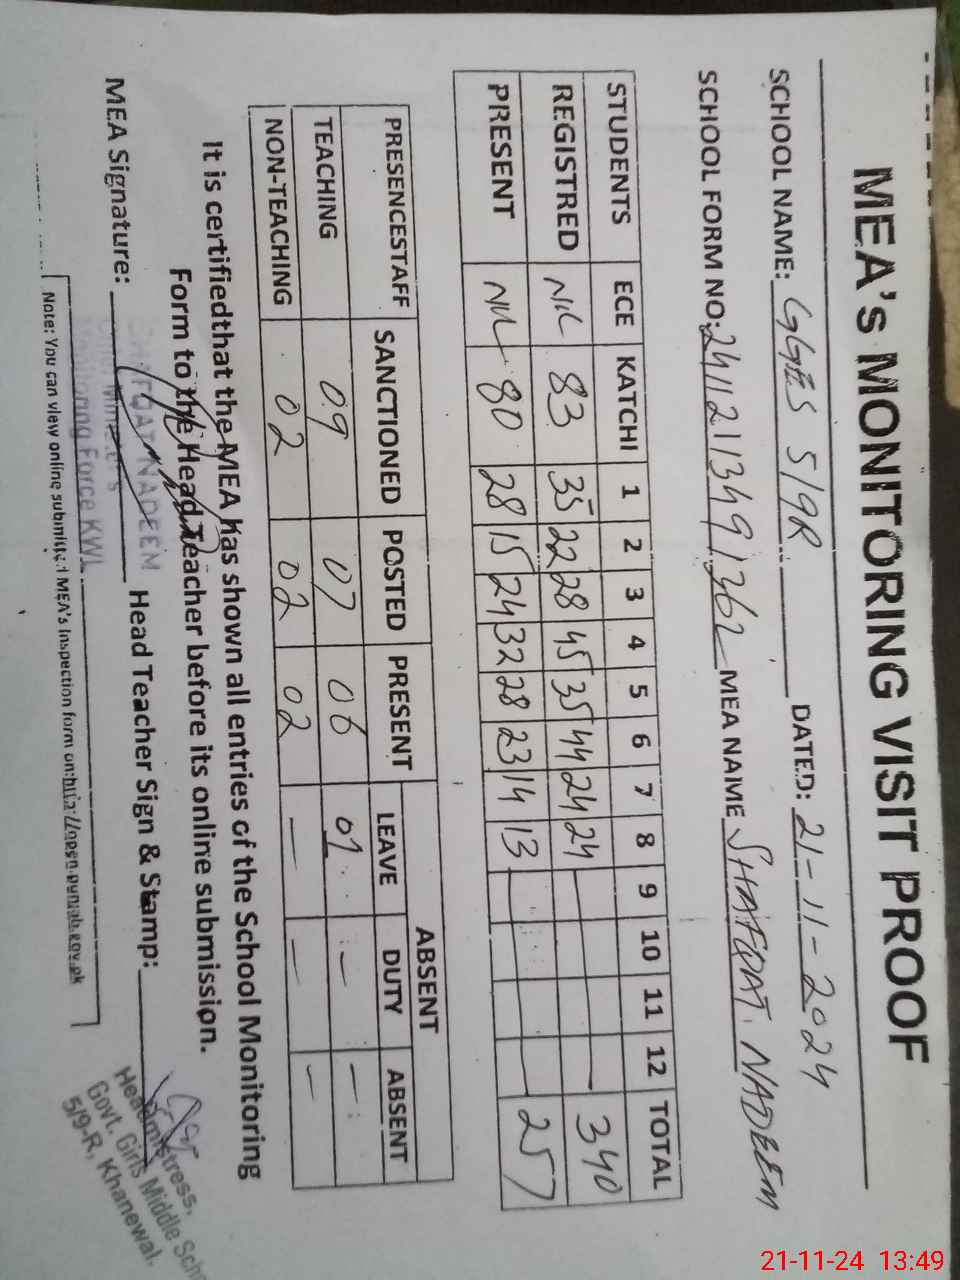 MEA's MONITORING VISIT PROOF
SCHOOL NAME: GGES 5/9R DATED: 21-11-2024
SCHOOL FORM NO: 24112113491362 MEA NAME SHAFQAT. NADEEM
STUDENTS ECE KATCHI 1 2 3 4 5 6 7 8 9 10 11 12 TOTAL
REGISTRED NIL 83 35 22 28 45 35 44 24 24 — 340
PRESENT NIL 80 28 15 24 32 28 23 14 13 — 257
PRESENCESTAFF SANCTIONED POSTED PRESENT ABSENT
LEAVE DUTY ABSENT
TEACHING 09 07 06 01 — —
NON-TEACHING 02 02 02 — — —
It is certifiedthat the MEA has shown all entries of the School Monitoring
Form to the Head Teacher before its online submission.
MEA Signature: Head Teacher Sign & Stamp:
SHAFQAT NADEEM
Monitoring Force KWL
Headmistress,
Govt. Girls Middle Sch
5/9-R, Khanewal.
Note: You can view online submitted MEA's Inspection form on:http://open.punjab.gov.pk
21-11-24 13:49